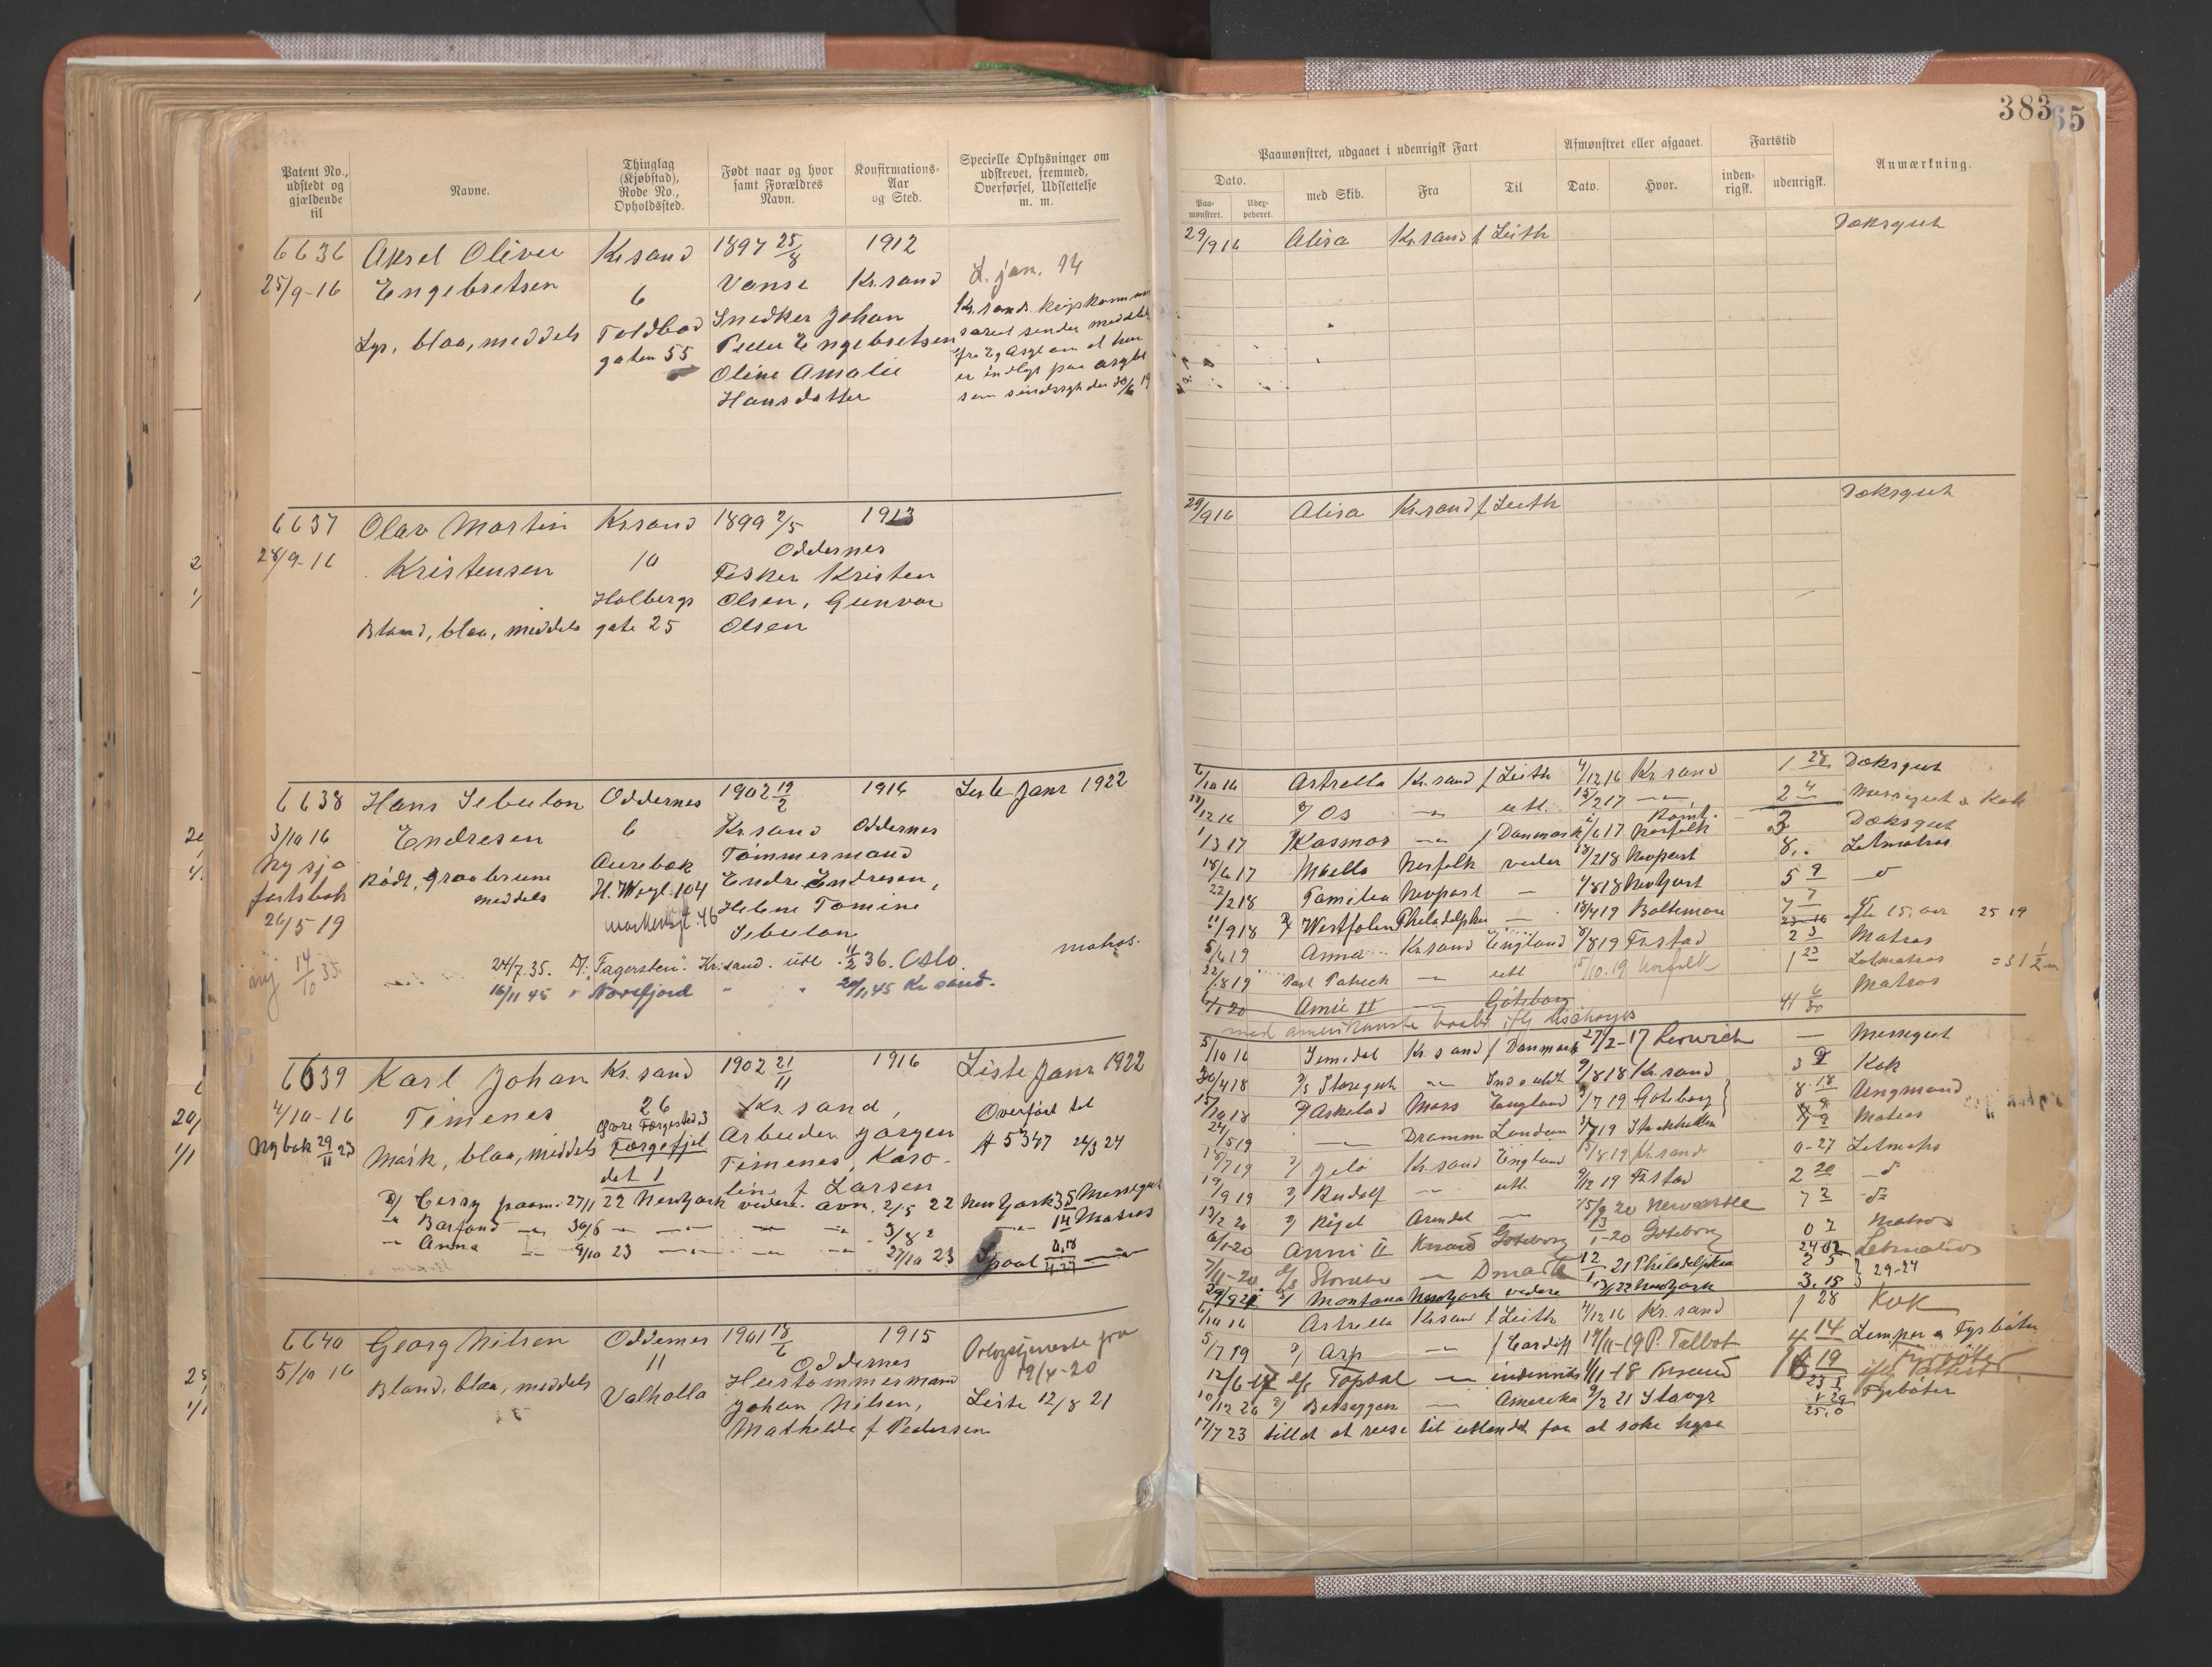 383
65
Patent No., udstedt og gjældende til
Navne.
Thinglag (Kjøbstad), Rode No., Opholdssted.
Født naar og hvor samt Forældres Navn.
Konfirmations-Aar og Sted.
Specielle Oplysninger om udskrevet, fremmed, Overførsel, Udslettelse m. m.
Paamønstret, udgaaet i udenrigsk Fart
Afmønstret eller afgaaet.
Fartstid
Anmærkning.
Dato.
Paa-mønstret.
Udex-pederet.
med Skib.
Fra
Til
Dato.
Hvor.
inden-rigsk.
udenrigsk.
6636 Aksel Oliver Kr.sand 1897 25/8 1912
25/9-16 Engebretsen 6 Vanse Kr.sand L. jan. 14
Lys, blaa, meddels Toldbod Snedker Johan
gaten 55 Peder Engebretsen
Oline Amalie
Hansdatter
29/9 16 Alisa Kr.sand f Leith Dæksgut
6637 Olav Martin Kr.sand 1899 7/5 1913
28/9-16 Kristensen 10 Oddernes
Fisker Kristen
Holbergs Olsen, Gunvor
Blond, blaa, meddels gate 25 Olsen
29/9 16 Alisa Kr.sand f Leith Dæksgut
6638 Hans Sebulon Oddernes 1902 19/2 1916 Liste Janr 1922
3/10 16 Endresen 6 Kr.sand Oddernes
Ny sjø Aurebæk Tømmermand
fartsbok Rødt, graabrune H. Wergl. 104 Endre Endresen,
meddels Helene Tomine
26/5 19 Markensgt. 46 Sebulon
ny 14/10 35. 24/7.35. "Fagersten". Kr.sand. utl. 11/2 36. Oslo. matros.
16/11 45 Norefjord " " 20/11 45 Kr.sand.
6/10 16 Astrella Kr.sand f Leith 4/12 16 Kr.sand 1 28 Dæksgut
12 16 Os — utl. 15/2 17 — 2 4 Messegut & Kok
1/3 17 Kosmos — f Danmark 6 17 Norfolk 3 Dæksgut
18/6 17 Maella Norfolk videre 18/2 18 Newport 8 Letmatros
22/2 18 Tomilea Newport — 8 18 NewYork 5 9
11/9 18 Westfolen Philadelphia — 18/4 19 Baltimore 7 7
5/6 19 Anna Kr.sand England 8/8 19 Fr.stad 2 3 Matros
22/8 19 Patrick — utl 5/10.19 Norfolk 1 23 Letmatros
6/1 20 Annie II — Göteborg Matros
6639 Karl Johan Kr.sand 1902 21/11 1916 Liste Janr 1922
4/10-16 Timenes 26 Kr.sand, Overført til
Ny bok 29/11 23 Øvre Færgested 3 Arbeider Jørgen A 5347 26/3 24
Mørk, blaa, meddels Færgefjel Timenes, Karo-
det 1 line f Larsen
Cerry paam. 27/1 22 NewYork videre. avm. 2/5 22 NewYork 3 5 Messegut
Barfond 30/6 — 3/8 14 Matros
Anna 9/10 23 — 27/10 23
5/10 16 Semedal Kr.sand f Danmark 27/2-17 Lerwick — Messegut
30/4 18 Storegut — 9/8 18 Kr.sand 3 9 Kok
15/10 18 Askelad Moss England 7 19 Göteborg 8.18 Ungmand
24/5 19 — Dramm London 7 19 Stockholm Matros
15/7 19 Jelø Kr.sand England 15/8 19 Kr.sand 0-27 Letmatros
19/9 19 Rudolf — utl 9/12 19 Fr.stad 2 20
13/2 20 Rigel Arendal — 15/9 20 Newcastle 7 2
6/1-20 Anni II Krsand Göteborg 1-20 Göteborg 0 7 Matros
7/11-20 — Dmark 12/1 21 Philadelphia 29-24
29/9 21 Montana NewYork videre 22 NewYork 3.15
6640 Georg Nilsen Oddernes 1901 18/6 1915
5/10 16 11 Oddernes 19/4-20
Blond, blaa, meddels Valhalla Hustømmermand
Johan Nilsen, Liste 12/8 21
Mathilde f Pedersen
6/10 16 Astrella Kr.sand f Leith 4/12 16 Kr.sand 1 28 Kok
5/7 19 Arp — f Cardiff 19/11-19 P. Talbot 4 14 Lemper & Fyrbøter
12/6-17 Topdal — indenriks 1/11-18 Krsand
10/12 20 Betseggen — Amerika 9/2 21 Stavgr Fyrbøter
17/7 23 tillat at reise til utlandet for at søke hyre